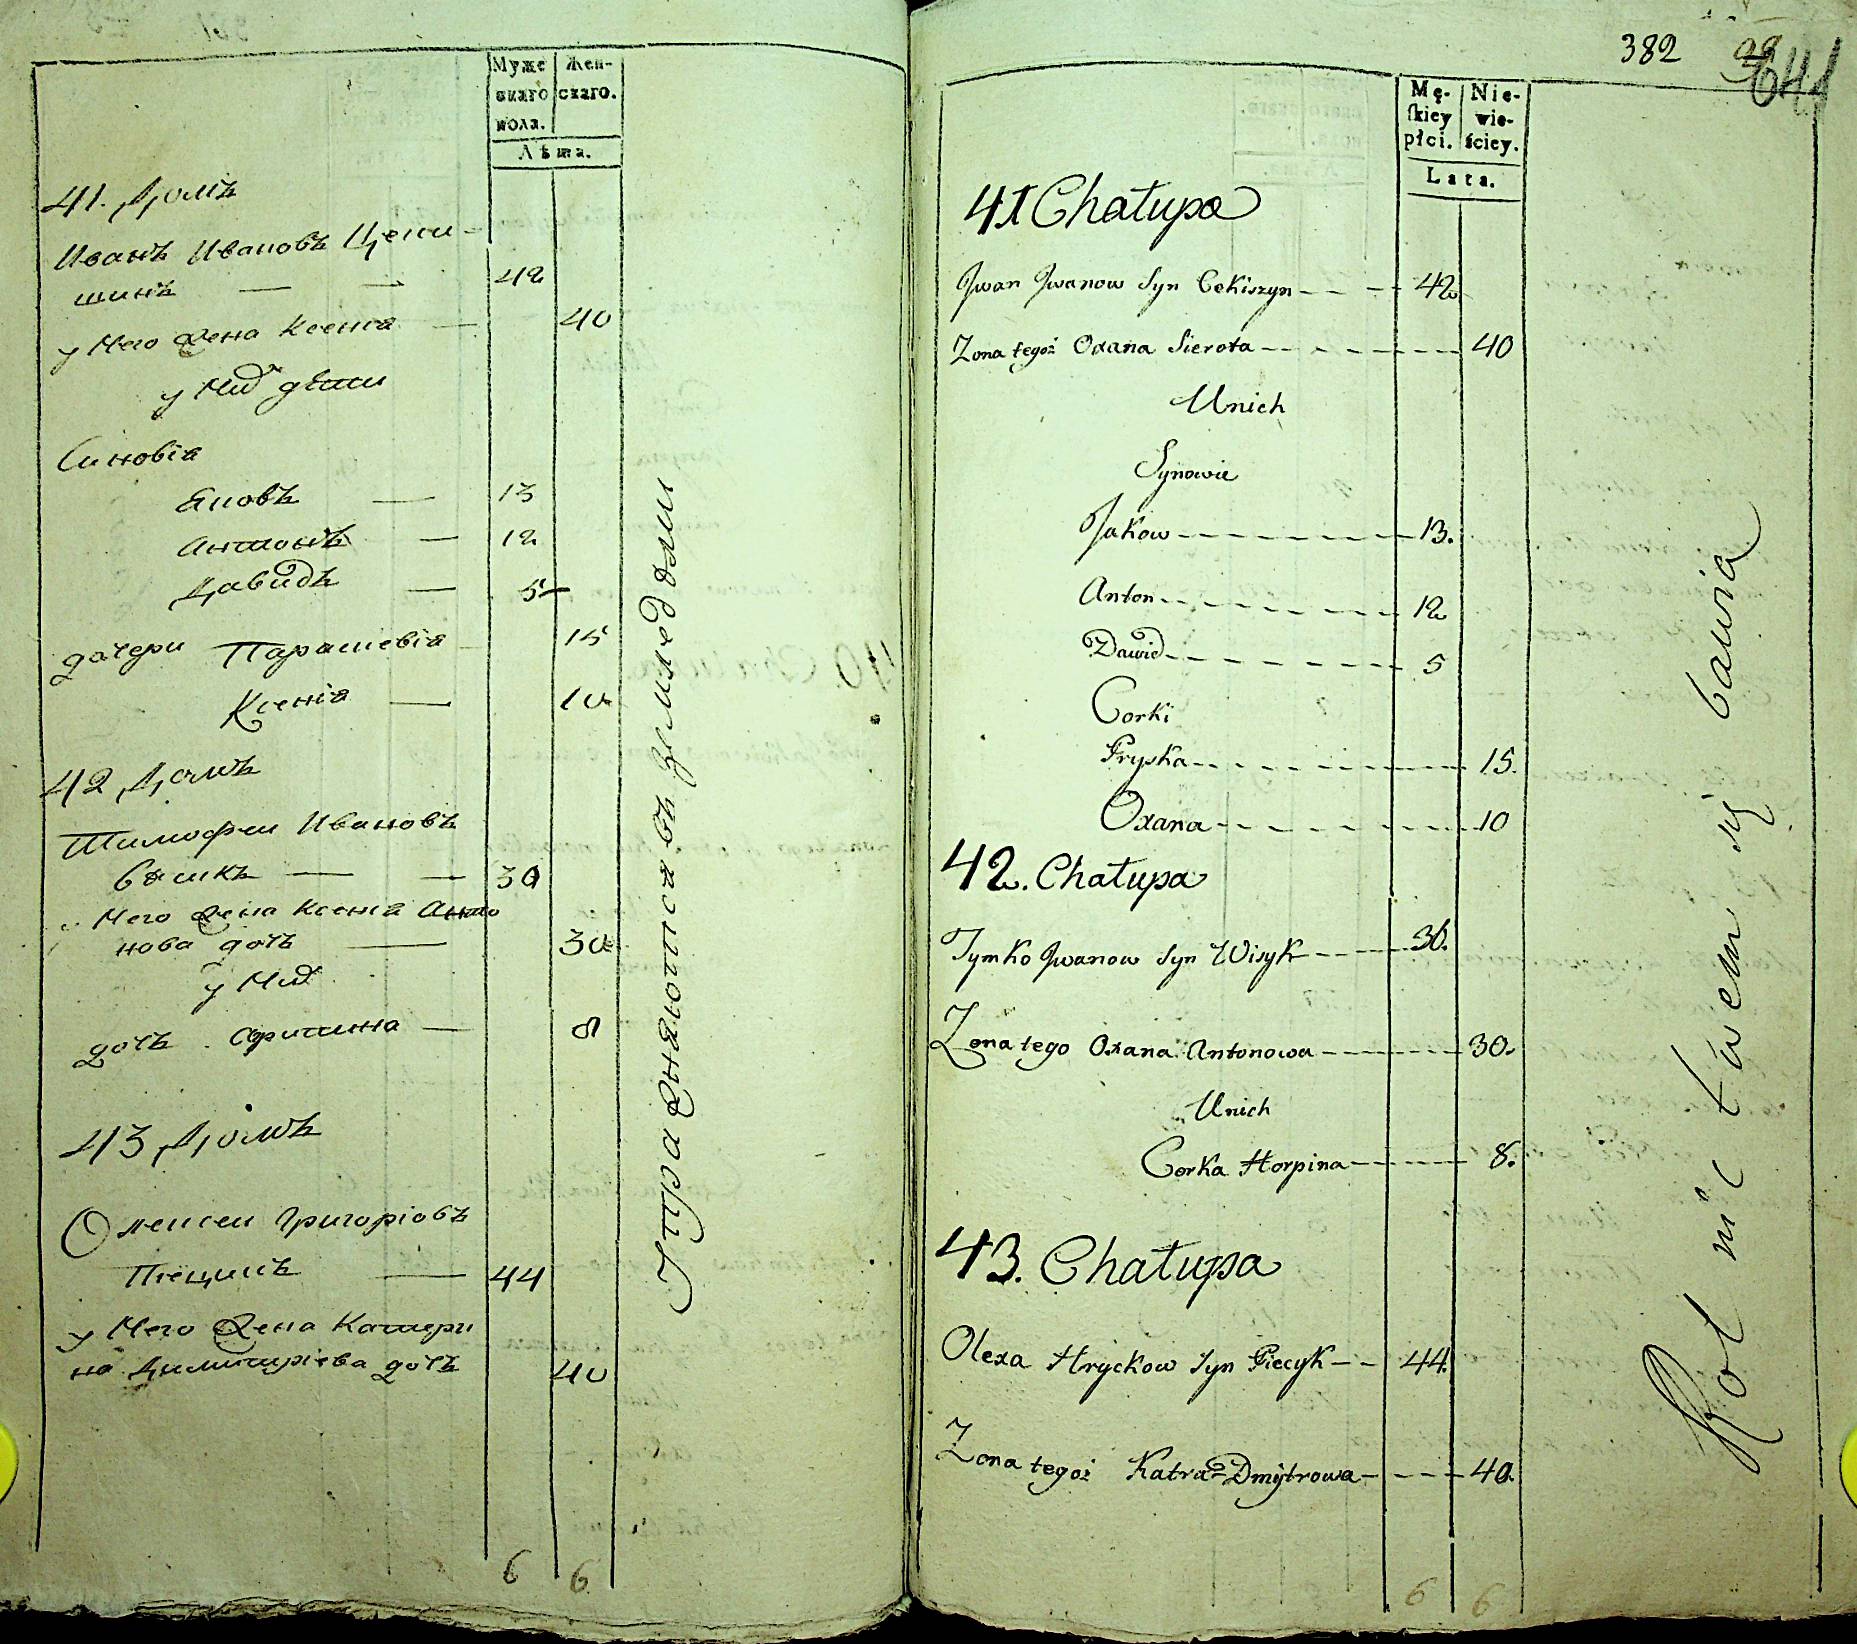 Муже
скаго
пола.
Жен-
скаго.
Лѣта.
41. Домъ
Иванъ Ивановъ Цеки-
шинъ — — 42
у Него Жена Ксения — 40
у Них дѣти
Синовіа
Яковъ — 13
Антонъ — 12
Давидъ — 5
дочери Парашевіа 15
Ксеніа — 10
42 Домъ
Тимофеи Ивановъ
висикъ — — 30
у Него Жена Ксения Анто
нова дочь — 30
у Них
дочь Афитина — 8
43 Домъ
Олексеи Григоріовъ
Піецикъ — 44
у Него Жена Катери
на Димитріева дочь 40
6 6
Упражняются въ земледѣли
382
641
Mę-
skiey
płci.
Nie-
wie-
ściey.
Lata.
41 Chałupa
Jwan Jwanow Syn Cekiszyn 42
Zona tegoż Oxana Sierota 40
Unich
Synowie
Jakow 13.
Anton 12
Dawid 5
Corki
Pryska 15.
Oxana 10
42. Chałupa
Tymko Jwanow Syn Wisyk 30.
Zona tego Oxana Antonowa 30.
Unich
Corka Horpina 8.
43. Chałupa
Olexa Hryckow Syn Piecyk 44.
Zona tegoż Katra Dmytrowa 40.
6 6
Rol nic twem się bawią